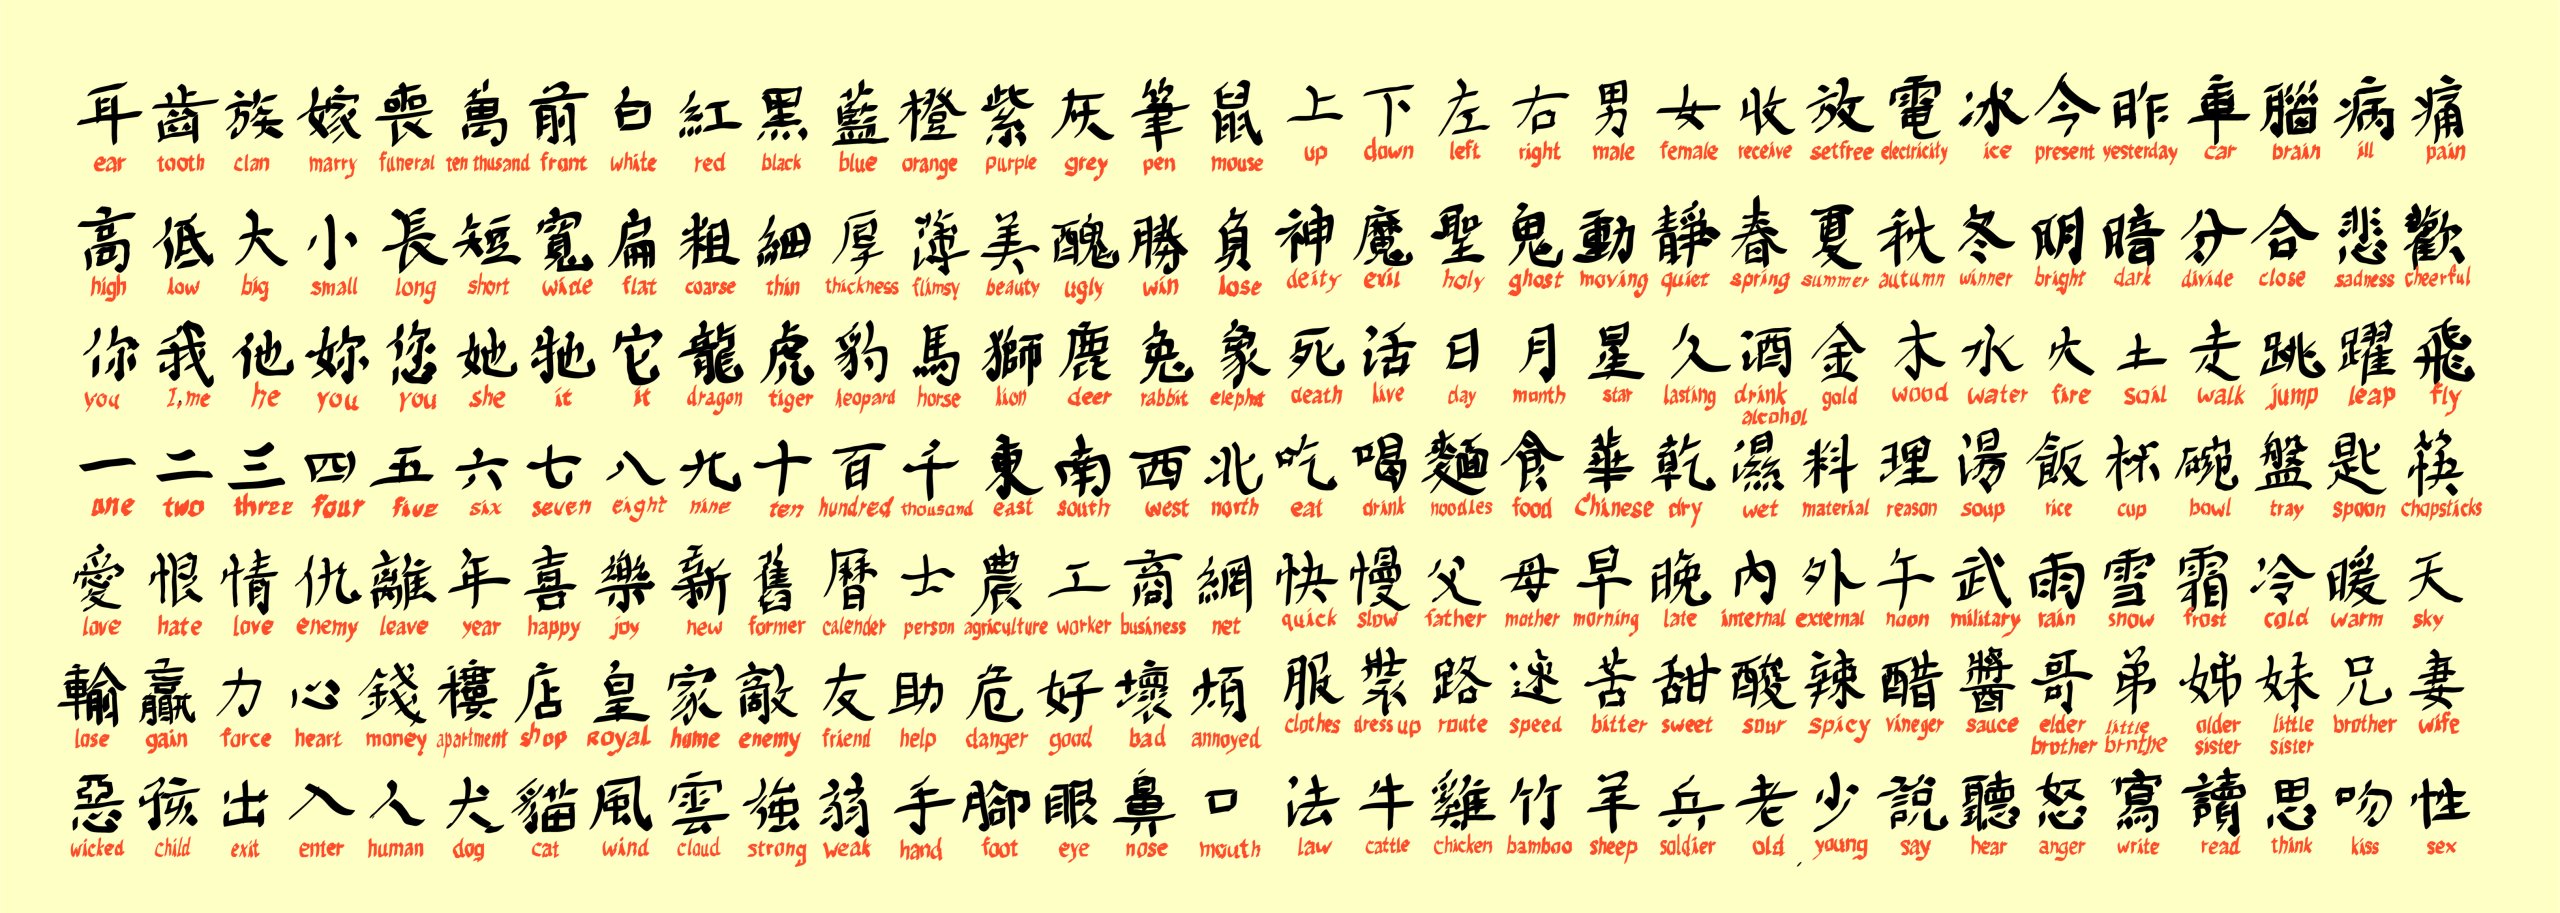 耳 齒 族 嫁 喪 萬 前 白 紅 黑 藍 橙 紫 灰 筆 鼠 上 下 左 右 男 女 收 放 電 冰 今 昨 車 腦 病 痛
ear tooth clan marry funeral ten thusand front white red black blue orange purple grey pen mouse up down left right male female receive setfree electricity ice present yesterday car brain ill pain
高 低 大 小 長 短 寬 扁 粗 細 厚 薄 美 醜 勝 負 神 魔 聖 鬼 動 靜 春 夏 秋 冬 明 暗 分 合 悲 歡
high low big small long short wide flat coarse thin thickness flimsy beauty ugly win lose deity evil holy ghost moving quiet spring summer autumn winner bright dark divide close sadness cheerful
你 我 他 妳 您 她 牠 它 龍 虎 豹 馬 獅 鹿 兔 象 死 活 日 月 星 久 酒 金 木 水 火 土 走 跳 躍 飛
you I,me he you you she it it dragon tiger leopard horse lion deer rabbit elepht death live day month star lasting drink gold wood water fire soil walk jump leap fly
alcohol
一 二 三 四 五 六 七 八 九 十 百 千 東 南 西 北 吃 喝 麵 食 華 乾 濕 料 理 湯 飯 杯 碗 盤 匙 筷
one two three four five six seven eight nine ten hundred thousand east south west north eat drink noodles food Chinese dry wet material reason soup rice cup bowl tray spoon chopsticks
愛 恨 情 仇 離 年 喜 樂 新 舊 曆 士 農 工 商 網 快 慢 父 母 早 晚 內 外 午 武 雨 雪 霜 冷 暖 天
love hate love enemy leave year happy joy new former calender person agriculture worker business net quick slow father mother morning late internal external noon military rain snow frost cold warm sky
輸 贏 力 心 錢 樓 店 皇 家 敵 友 助 危 好 壞 煩 服 裝 路 迷 苦 甜 酸 辣 醋 醬 哥 弟 姊 妹 兄 妻
lose gain force heart money apartment shop Royal home enemy friend help danger good bad annoyed clothes dress up route speed bitter sweet sour spicy vineger sauce elder little older little brother wife
brother brothe sister sister
惡 孩 出 入 人 犬 貓 風 雲 強 弱 手 腳 眼 鼻 口 法 牛 雞 竹 羊 兵 老 少 說 聽 怒 寫 讀 思 吻 性
wicked child exit enter human dog cat wind cloud strong weak hand foot eye nose mouth law cattle chicken bamboo sheep soldier old young say hear anger write read think kiss sex